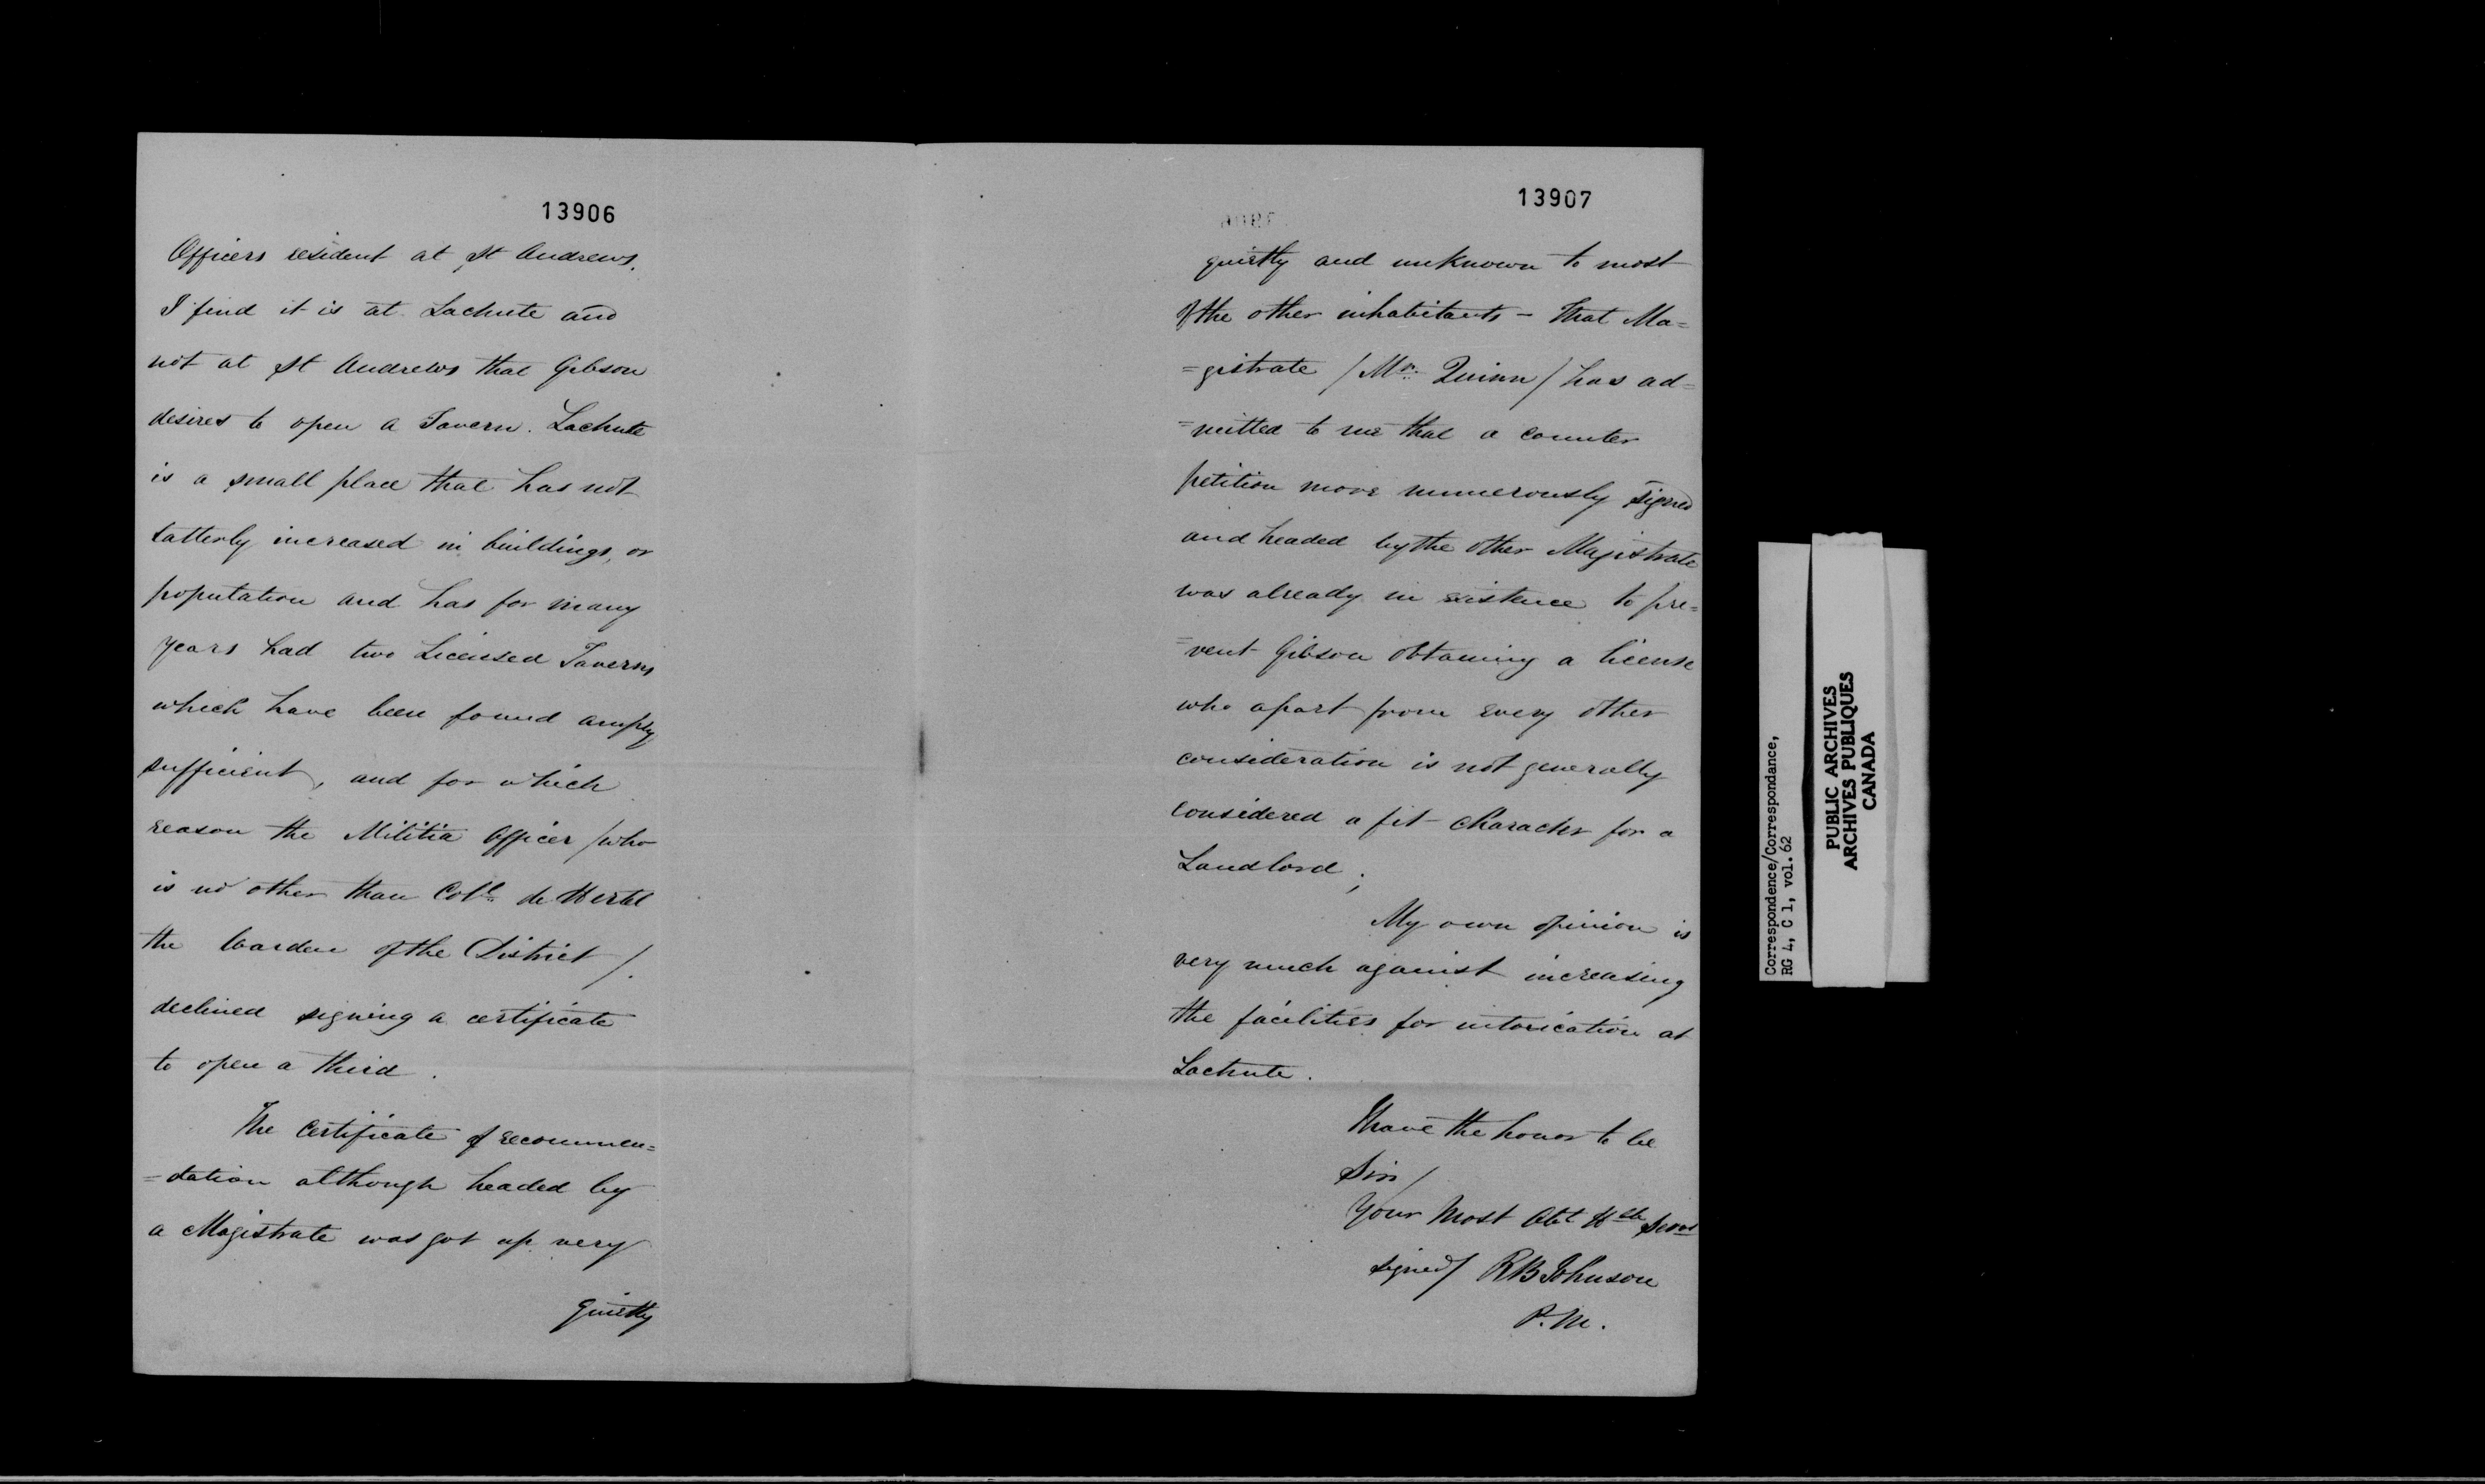 13906
Officers resident at St Andrews.
I find it is at Lachute and
not at St Andrews that Gibson
desires to open a Tavern. Lachute
is a small place that has not
latterly increased in buildings, or
population and has for many
years had two Licensed Taverns
which have been found amply
sufficient, and for which
reason the Militia Officer /who
is no other than Coll. de Hertel
the Warden of the District/.
declined signing a certificate
to open a third.
The Certificate of recommen=
=dation although headed by
a Magistrate was got up very
quietly
13907
quietly and unknown to most
of the other inhabitants - That Ma=
=gistrate /Mr. Quinn/ has ad=
=mitted to me that a counter
petition more numerously signed
and headed by the other Magistrate
was already in existence to pre=
=vent Gibson obtaining a license
who apart from every other
consideration is not generally
considered a fit character for a
Landlord;
My own opinion is
very much against increasing
the facilities for intoxication at
Lachute.
I have the honor to be
Sir/
Your Most Obt Hble Servt
signed/ RB Johnson
P.M.
Correspondence/Correspondance,
RG 4, C 1, vol.62
PUBLIC ARCHIVES
ARCHIVES PUBLIQUES
CANADA